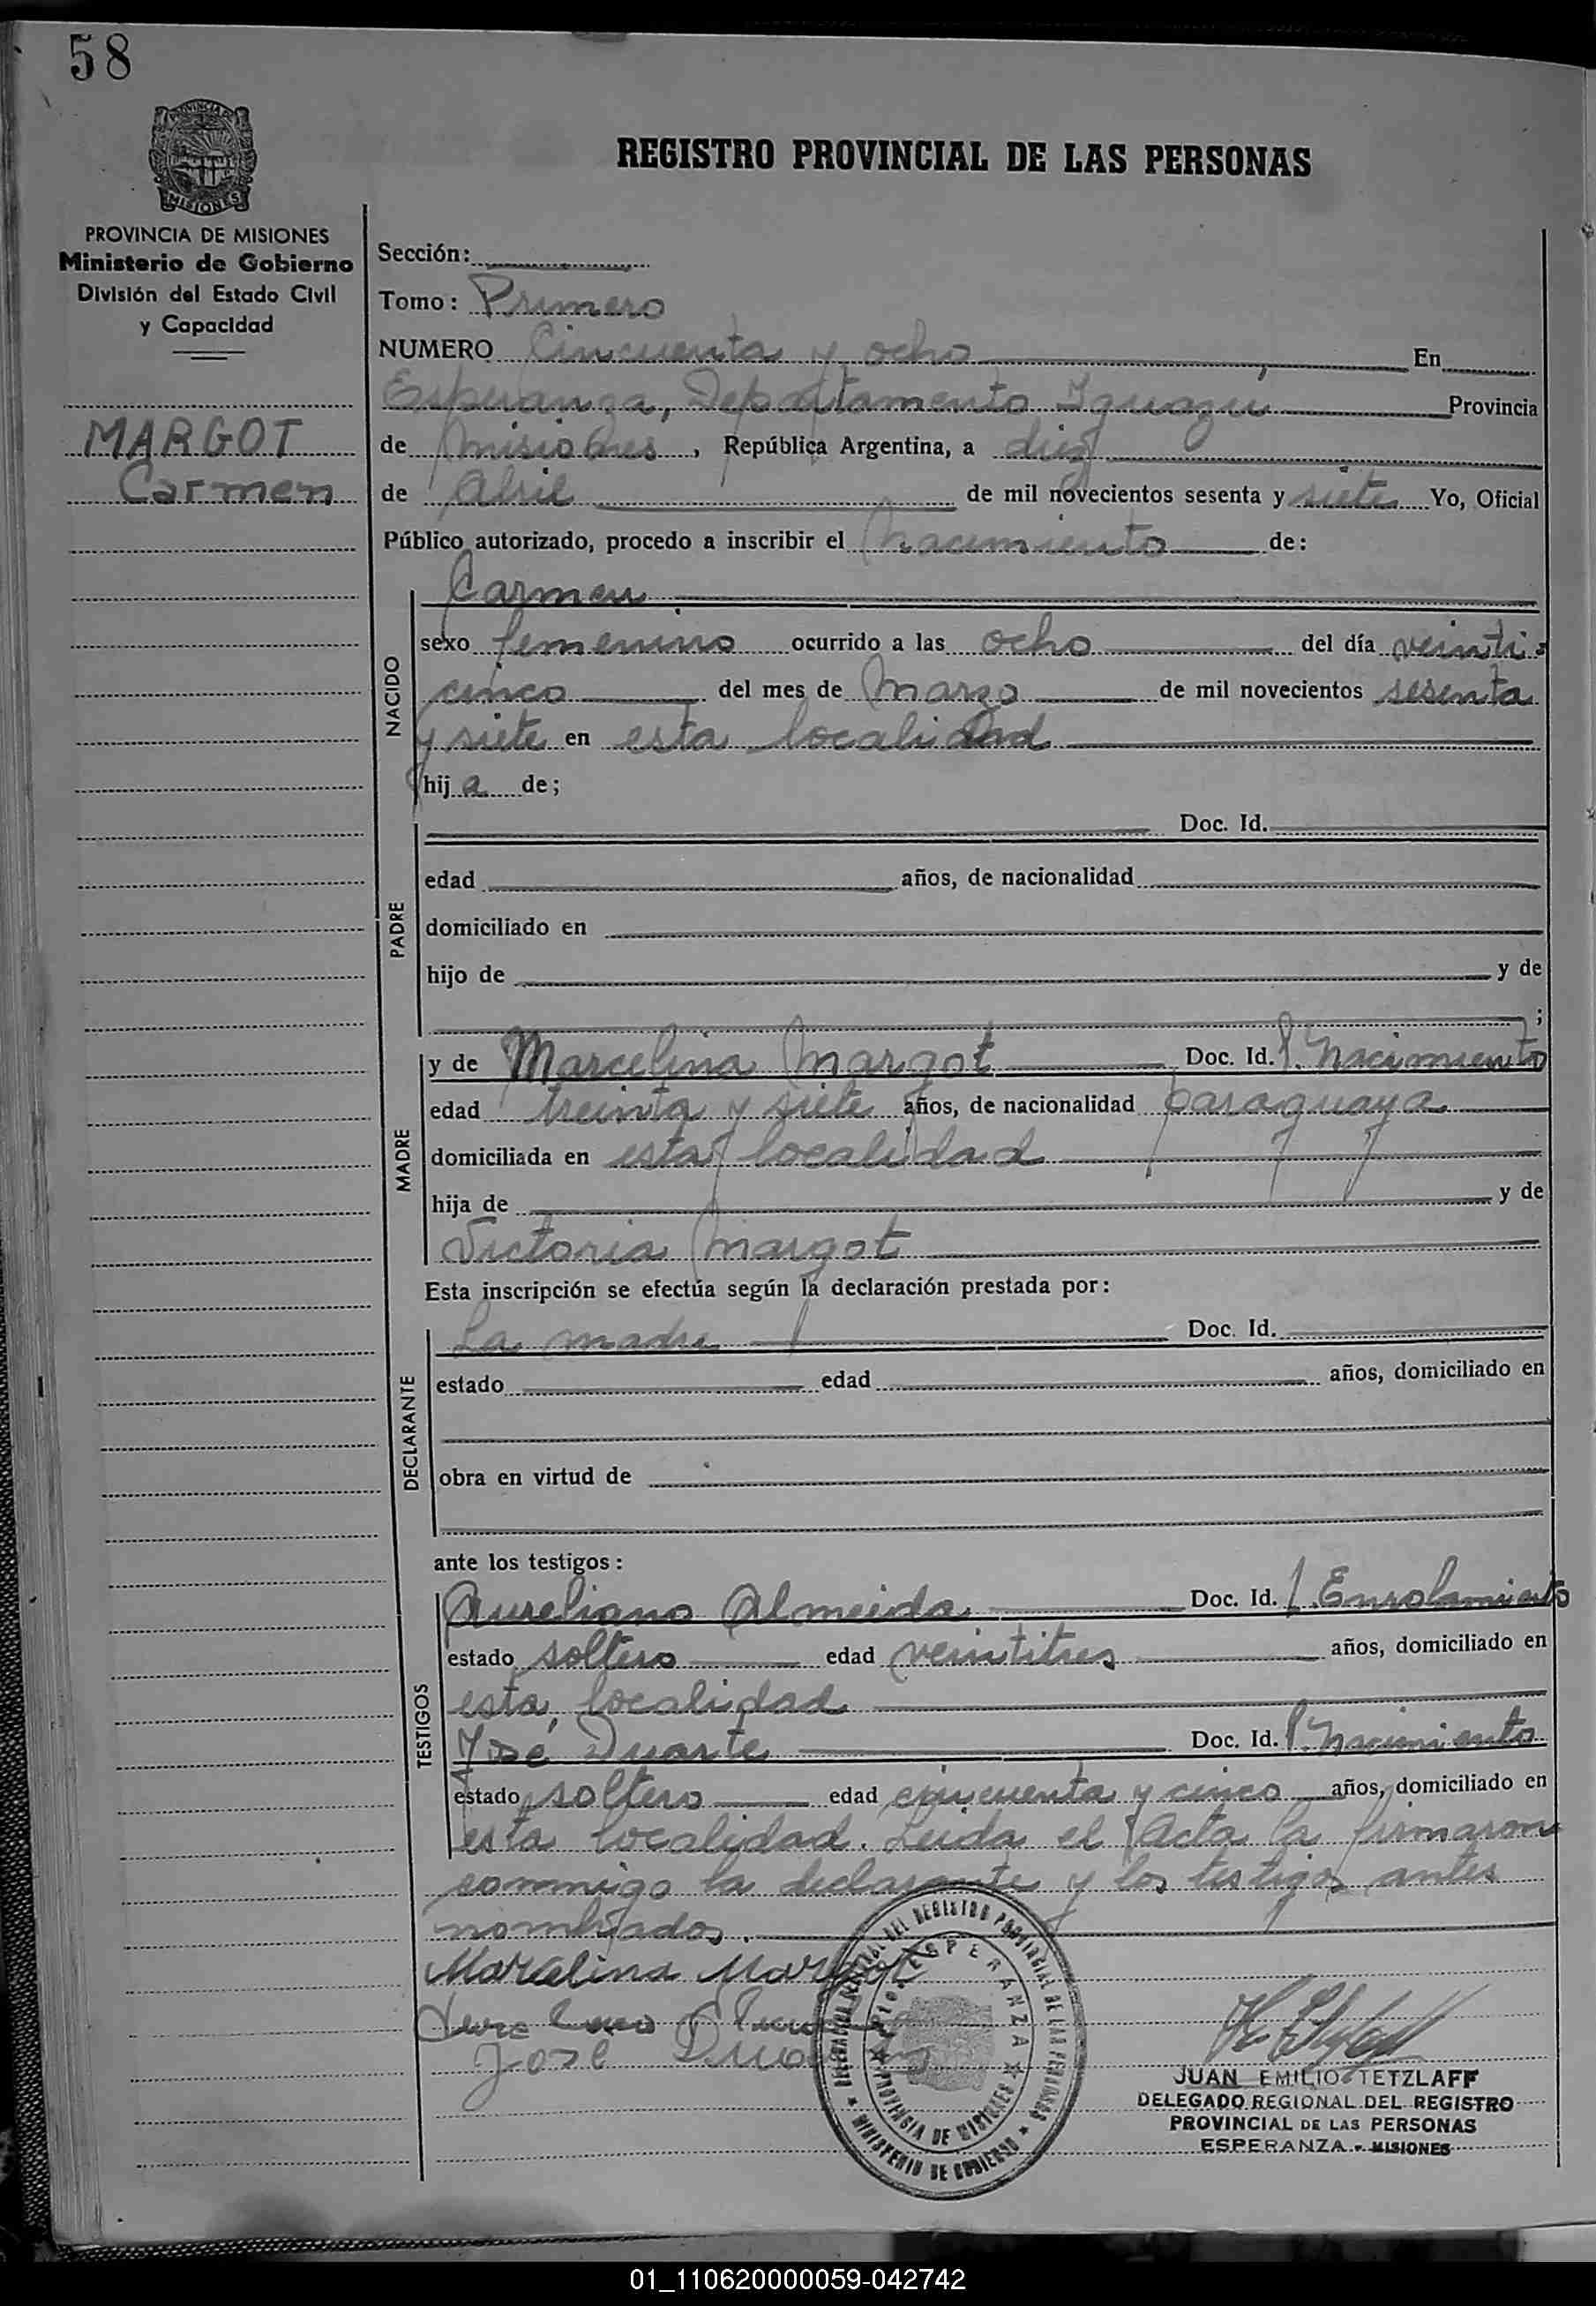 58
PROVINCIA DE
MISIONES
REGISTRO PROVINCIAL DE LAS PERSONAS
PROVINCIA DE MISIONES
Ministerio de Gobierno
División del Estado Civil
y Capacidad
MARGOT
Carmen
Sección:
Tomo: Primero
NUMERO Cincuenta y ocho En
Esperanza, Departamento Iguazú Provincia
de Misiones, República Argentina, a diez
de Abril de mil novecientos sesenta y siete Yo, Oficial
Público autorizado, procedo a inscribir el nacimiento de:
NACIDO
Carmen
sexo femenino ocurrido a las ocho del día veinti-
cinco del mes de Marzo de mil novecientos sesenta
y siete en esta localidad
hija de;
PADRE
Doc. Id.
edad años, de nacionalidad
domiciliado en
hijo de y de
;
MADRE
y de Marcelina Margot Doc. Id. P. Nacimiento
edad treinta y siete años, de nacionalidad paraguaya
domiciliada en esta localidad
hija de y de
Victoria Margot
Esta inscripción se efectúa según la declaración prestada por:
DECLARANTE
La madre Doc. Id.
estado edad años, domiciliado en
obra en virtud de
ante los testigos:
TESTIGOS
Aureliano Almeida Doc. Id. L. Enrolamiento
estado soltero edad veintitres años, domiciliado en
esta localidad
José Duarte Doc. Id. P. Nacimiento
estado soltero edad cincuenta y cinco años, domiciliado en
esta localidad. Leida el Acta la firmaron
conmigo la declarante y los testigos antes
nombrados.
Marcelina Margot
José
DEL REGISTRO PROVINCIAL DE LAS PERSONAS
MINISTERIO DE GOBIERNO
ESPERANZA
PROVINCIA DE MISIONES
JUAN EMILIO TETZLAFF
DELEGADO REGIONAL DEL REGISTRO
PROVINCIAL DE LAS PERSONAS
ESPERANZA - MISIONES
01_110620000059-042742